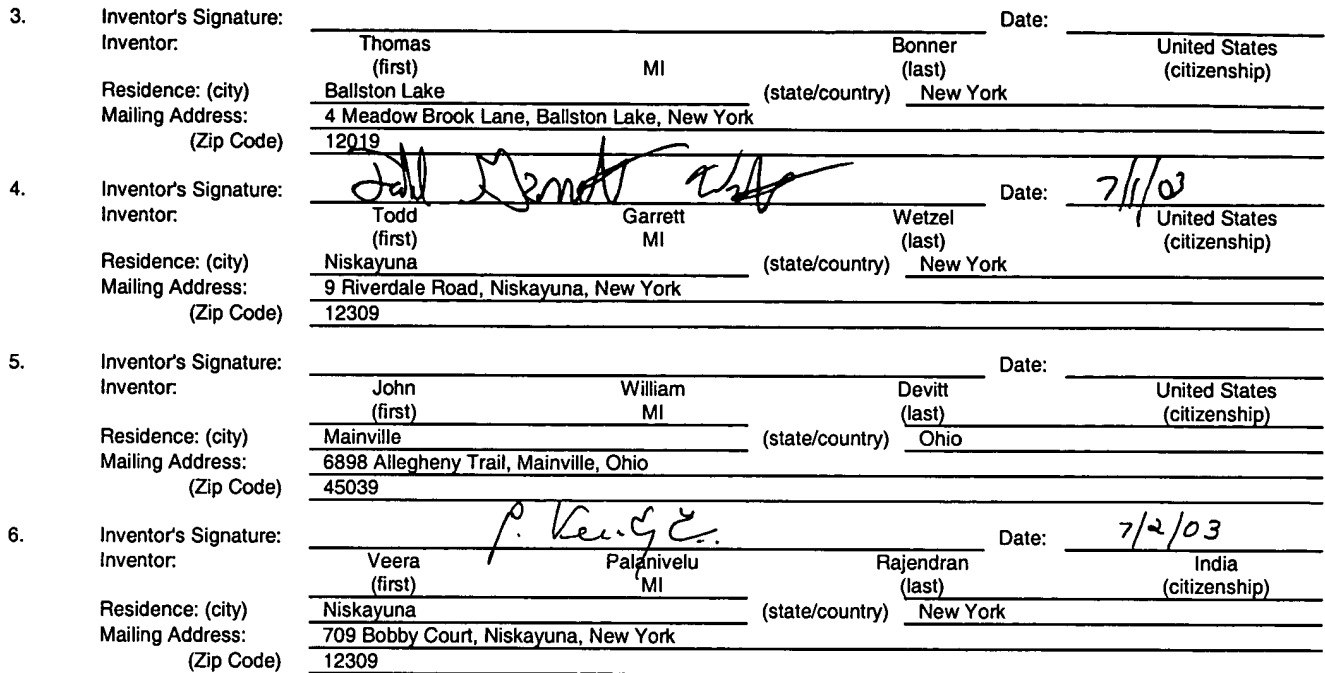 3. Inventor's Signature: Date:
Inventor: Thomas Bonner United States
(first) MI (last) (citizenship)
Residence: (city) Ballston Lake (state/country) New York
Mailing Address: 4 Meadow Brook Lane, Ballston Lake, New York
(Zip Code) 12019
4. Inventor's Signature: Todd Garrett Date: 7/1/03
Inventor: Todd Garrett Wetzel United States
(first) MI (last) (citizenship)
Residence: (city) Niskayuna (state/country) New York
Mailing Address: 9 Riverdale Road, Niskayuna, New York
(Zip Code) 12309
5. Inventor's Signature: Date:
Inventor: John William Devitt United States
(first) MI (last) (citizenship)
Residence: (city) Mainville (state/country) Ohio
Mailing Address: 6898 Allegheny Trail, Mainville, Ohio
(Zip Code) 45039
6. Inventor's Signature: P. Date: 7/2/03
Inventor: Veera Palanivelu Rajendran India
(first) MI (last) (citizenship)
Residence: (city) Niskayuna (state/country) New York
Mailing Address: 709 Bobby Court, Niskayuna, New York
(Zip Code) 12309